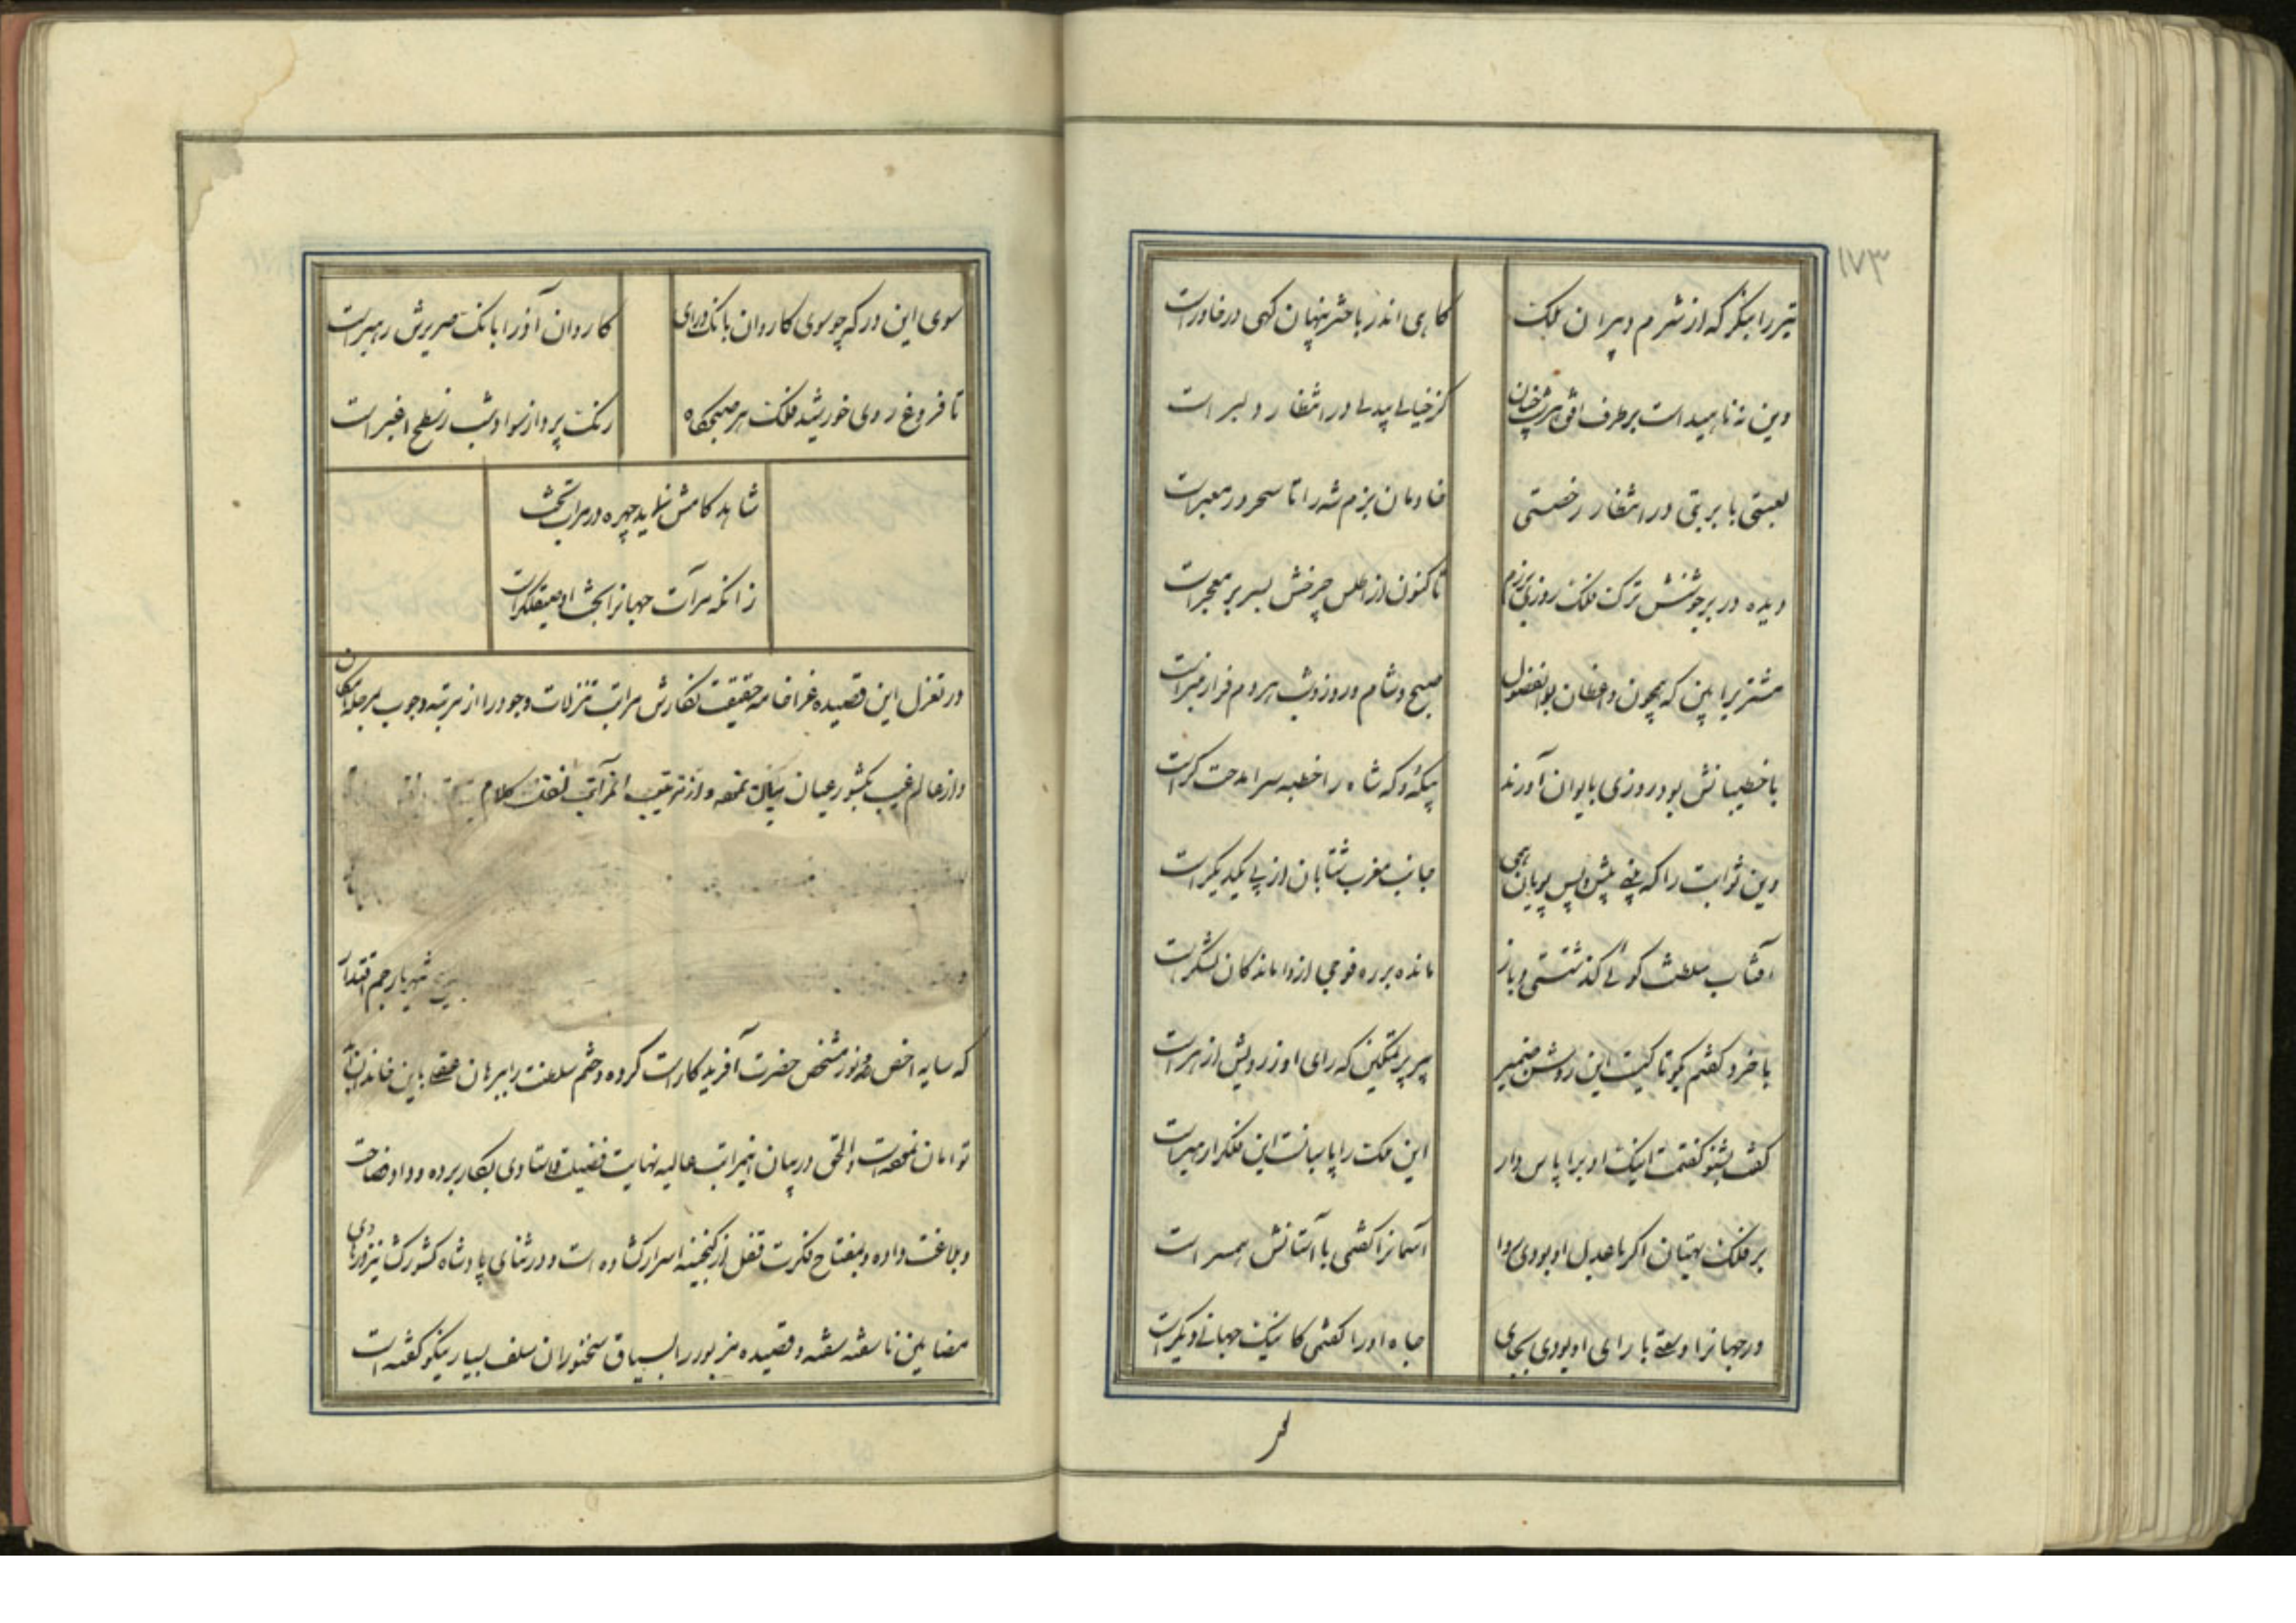 ۱۷۳
تیر را بنگر که از شرم دبیران ملک
گاهی اندر باختر پنهان گهی در خاور است
وین نه ناهید است بر طرف افق هر شب چنان
کز خیالی پدلی در انتظار دلبر است
لعبتی با بربتی در انتظار رخصتی
خادمان بزم شه را تا سحر در معبر است
دیده در بر جوشنش ترک فلک روزی برزم
تا کنون از اطلس چرخش بسر بر معجر است
مشتریرا بین که همچون واعظان بوالفضول
صبح و شام و روز و شب هر دم فراز منبر است
با خطیبانش بود روزی بایوان آورند
بیکه و که شاه را خطبه سرا مدحت گر است
وین ثوابت را که بینی پیش و پس پویان همی
جانب مغرب شتابان از پی یکدیگر است
آفتاب سلطنت گوئی گذشتستی و باز
مانده بر ره فوجی از واماندگان لشکر است
با خرد گفتم بگو تا کیست این روشن ضمیر
پیر پر تمکین که رای او ز رویش ازهر است
گفت بشنو گفتمت اینک او برا پاس دار
این ملک را پاسبانست این فلک را رهبر است
بر فلک بهتان اگر با عدل او بودی روا
آسمانرا گفتمی با آستانش همسر است
در جهانرا وسعتی با رای او بودی بجای
جاه او را گفتمی کاینک جهانی دیگر است
سوی این درگه چو سوی کاروان بانک درای
کاروان آذر ابانک صریرش رهبر است
تا فروغ روی خورشید فلک هر صبحگاه
رنگ پرداز سواد شب ز سطح اغبر است
شاهد کامش نماید چهره در مرآت بخت
زانکه مرآت جهانرا بخت او صیقلگر است
در تغزل این قصیده غرا خامه حقیقت نگارش مراتب تنزلات وجود را از مرتبه وجوب بمرحله امکان
و از عالم غیب بکشور عیان بیان نموده و از ترتیب المرآتب کلام
شهریار جم اقتدار
که سایه اخص و نور مشخص حضرت آفریدگار است کرده و ختم سلطنت را ببرهان عقلی باین خاندان
توامان نموده است والحق در بیان این مراتب عالیه نهایت فضیلت و استادی بکار برده و داد فصاحت
و بلاغت داده و بمفتاح فکرت قفل از گنجینه اسرار گشاده است و در ثنای پادشاه کشورگشا نیز درهای
مضامین ناسفته سفته و قصیده مزبور را بسیاق سخنوران سلف بسیار نیکو گفته است